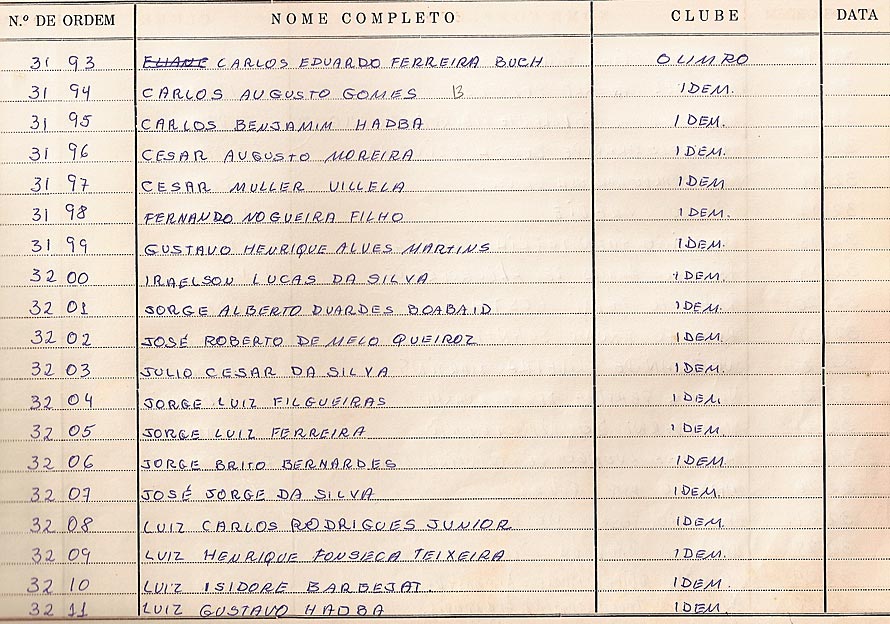 N.º DE ORDEM NOME COMPLETO CLUBE DATA
31 93 ELIANE CARLOS EDUARDO FERREIRA BUCH OLIMRO
31 94 CARLOS AUGUSTO GOMES 13 IDEM.
31 95 CARLOS BENJAMIM HADBA IDEM.
31 96 CESAR AUGUSTO MOREIRA IDEM.
31 97 CESAR MULLER VILLELA IDEM
31 98 FERNANDO NOGUEIRA FILHO IDEM.
31 99 GUSTAVO HENRIQUE ALVES MARTINS IDEM.
32 00 IRAELSON LUCAS DA SILVA IDEM.
32 01 JORGE ALBERTO DUARDES BOABAID IDEM.
32 02 JOSÉ ROBERTO DE MELO QUEIROZ IDEM.
32 03 JULIO CESAR DA SILVA IDEM.
32 04 JORGE LUIZ FILGUEIRAS IDEM.
32 05 JORGE LUIZ FERREIRA IDEM.
32 06 JORGE BRITO BERNARDES IDEM.
32 07 JOSÉ JORGE DA SILVA IDEM.
32 08 LUIZ CARLOS RODRIGUES JUNIOR IDEM.
32 09 LUIZ HENRIQUE FONSECA TEIXEIRA IDEM.
32 10 LUIZ ISIDORE BARBEJAT. IDEM.
32 11 LUIZ GUSTAVO HADBA IDEM.